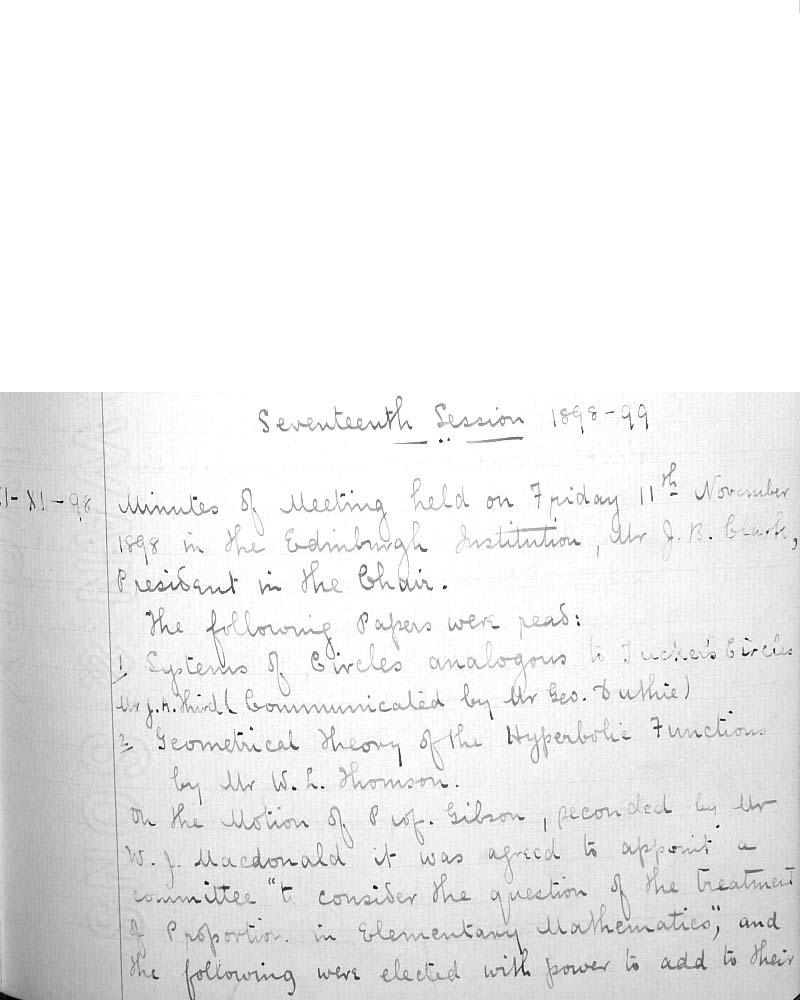 Seventeenth Session 1898-99
11-XI-98
Minutes of Meeting held on Friday 11th November
1898 in the Edinburgh Institution, Mr J. B. Clark,
President in the Chair.
The following Papers were read:
1, Systems of Circles analogous to Tucker's Circles
Mr J. A. Third (Communicated by Mr Geo. Duthie)
2, Geometrical Theory of the Hyperbolic Functions
by Mr W. L. Thomson.
On the Motion of Prof. Gibson, seconded by Mr
W. J. Macdonald it was agreed to appoint a
committee "to consider the question of the treatment
of Proportion in Elementary Mathematics", and
the following were elected with power to add to their